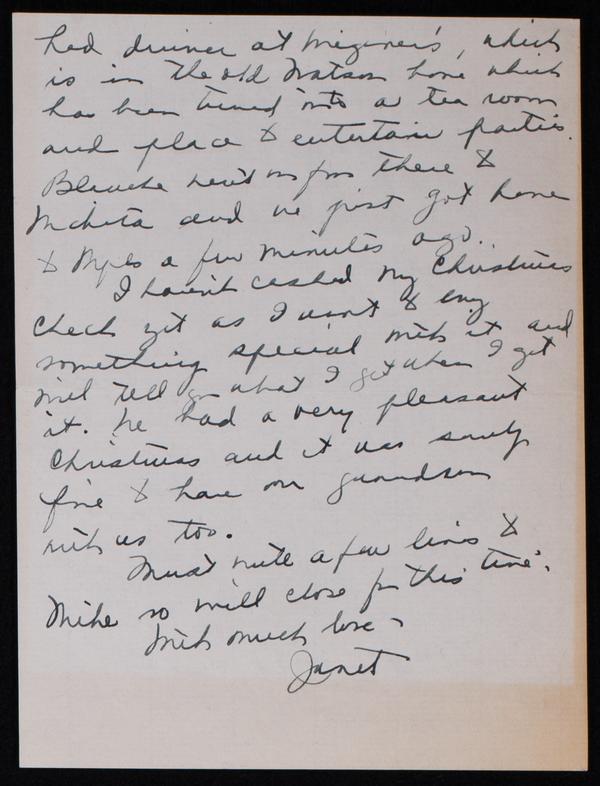 had dinner at Wegener's, which
is in the old Watson home which
has been turned into a tea room
and place to entertain parties.
Blanche went on from there to
Wichita and we just got home
to a few minutes ago.
I haven't cashed my Christmas
check yet as I want to buy
something special with it and
will tell you what I get when I get
it. We had a very pleasant
Christmas and it was surely
fine to have our grandson
with us too.
Must write a few lines to
Mike so will close for this time.
With much love -
Janet